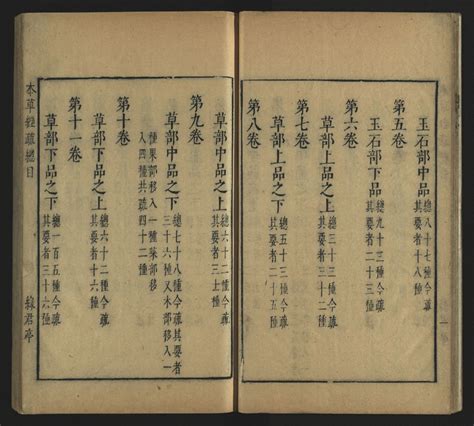 玉石部中品 總八十七種今疏
其要者二十種
第五卷
玉石部下品 總九十三種今疏
其要者二十三種
第六卷
草部上品之上 總三十三種今疏
其要者三十二種
第七卷
草部上品之下 總五十三種今疏
其要者二十五種
第八卷
草部中品之上 總六十二種今疏
其要者三十種
第九卷
草部中品之下 總七十八種今疏其要者
三十六種又木部移入一
種果部移入一種蔬部移
入四種共疏四十二種
第十卷
草部下品之上 總六十二種今疏
其要者十六種
第十一卷
草部下品之下 總一百五種今疏
其要者三十六種
本草經疏總目
綠君亭